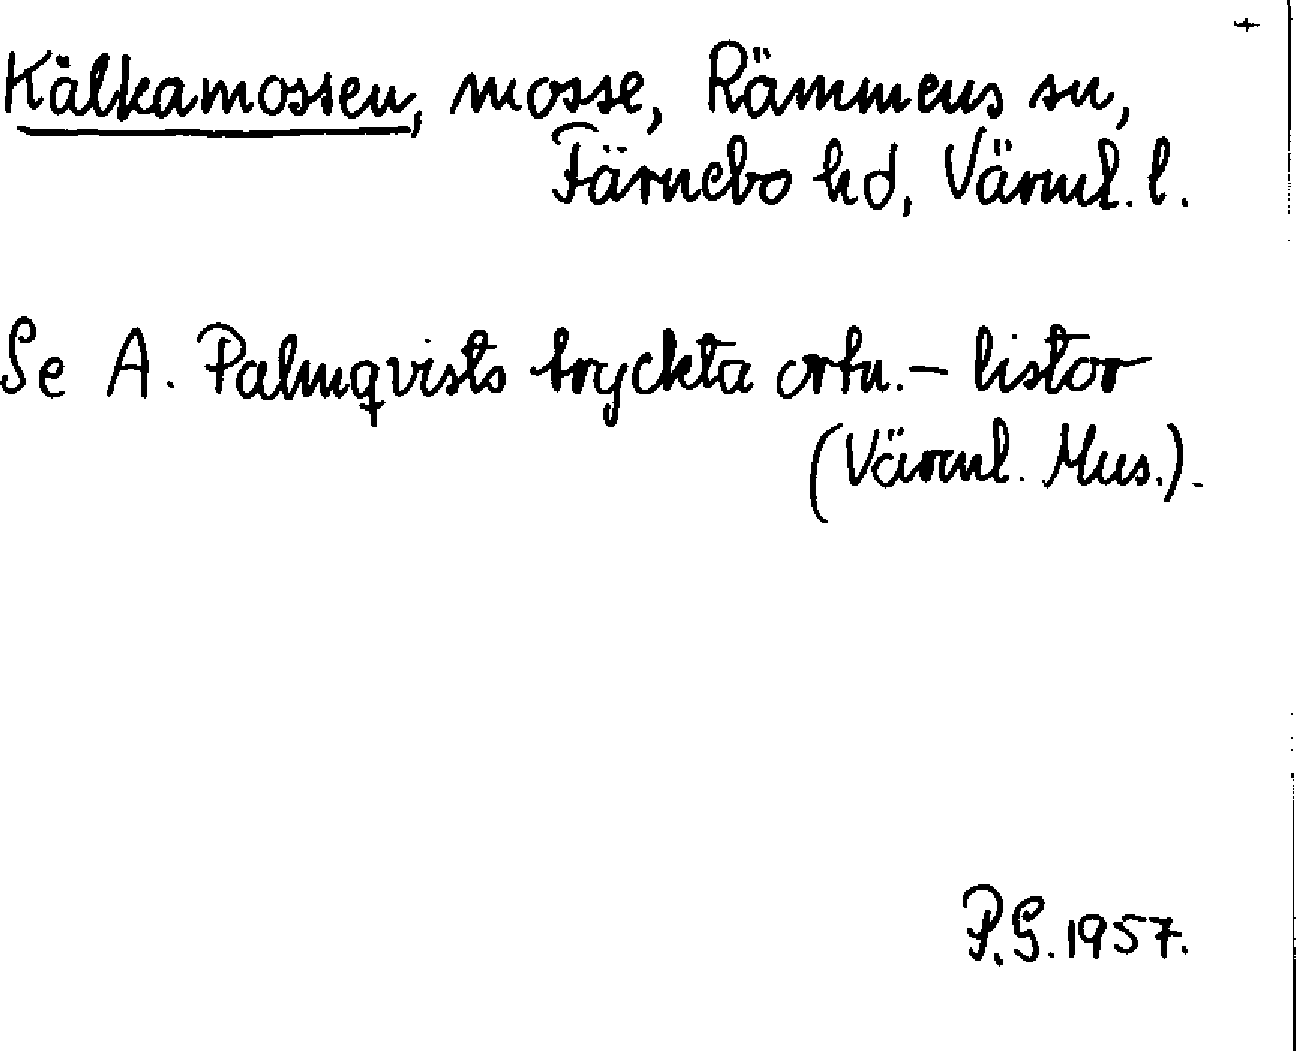 +
Kälkamossen, mosse, Rämmens sn,
Färnebo hd, Värml. l.
Se A. Palmqvists tryckta ortn.-listor
(Värml. Mus.).
P.G. 1957.